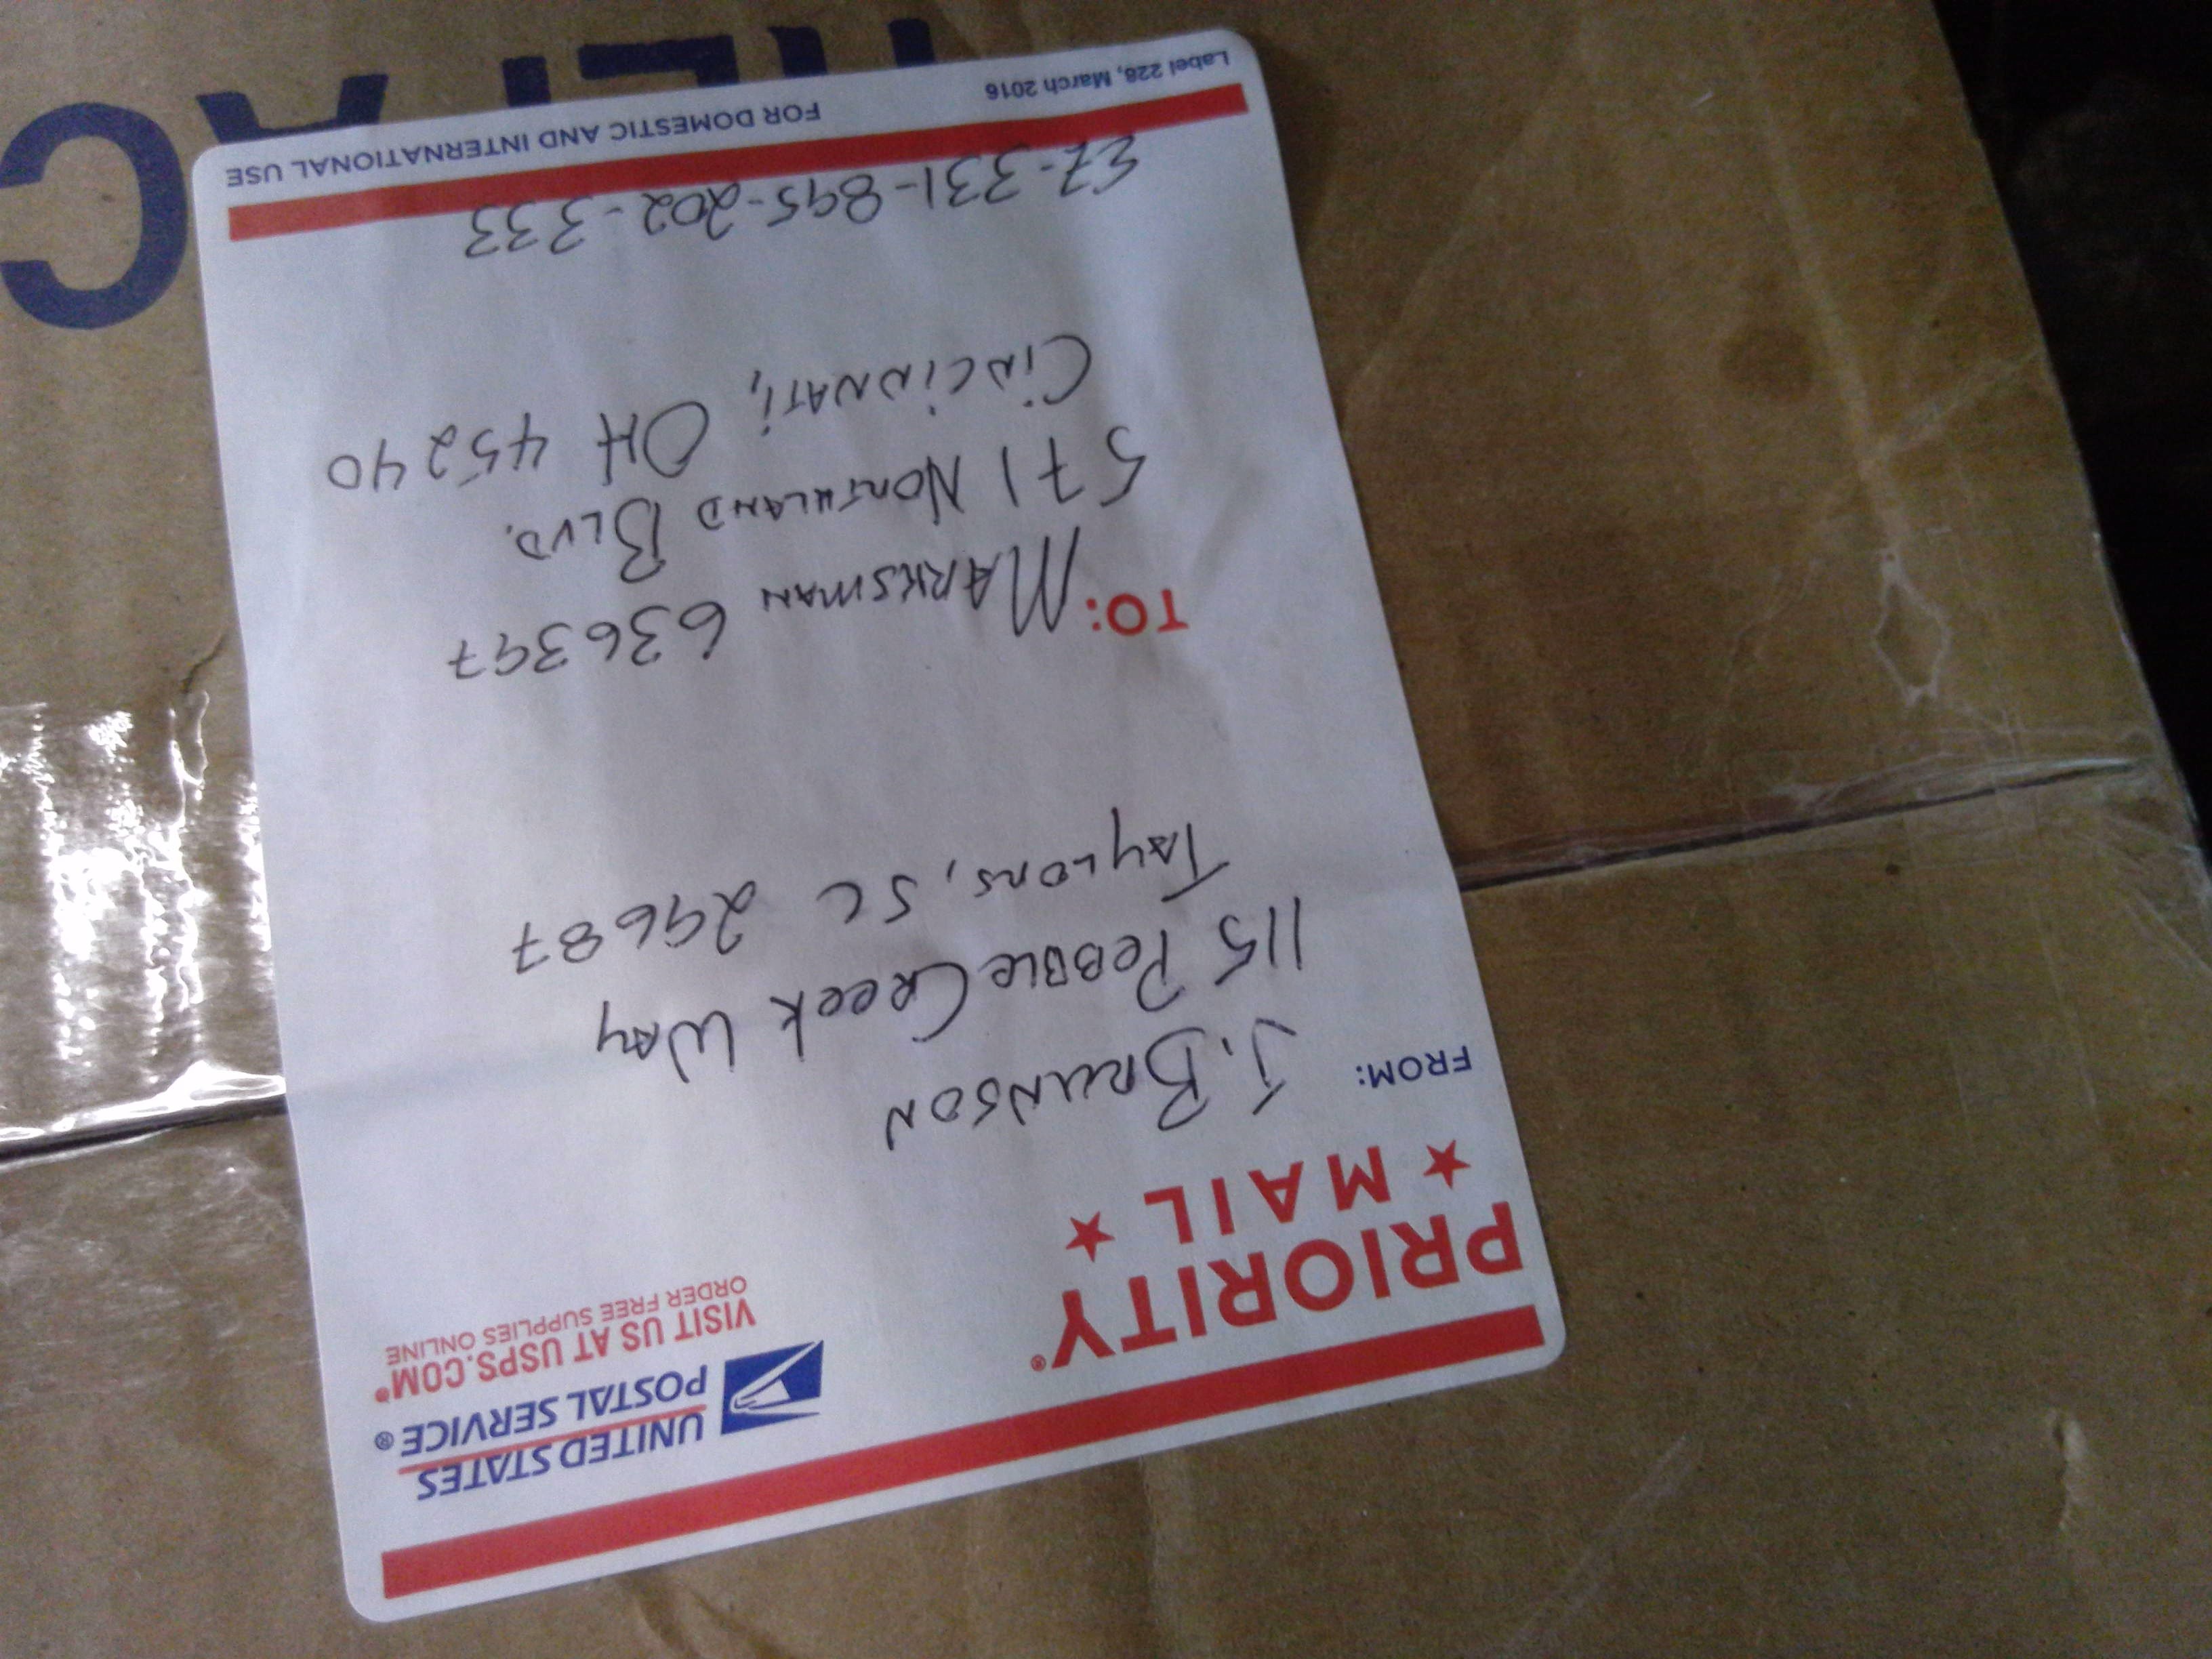 UNITED STATES
POSTAL SERVICE®
VISIT US AT USPS.COM®
ORDER FREE SUPPLIES ONLINE
PRIORITY®
★ MAIL ★
FROM:
J. BRUNSON
115 PeBBle CReek WAy
TAyLORS, SC 29687
TO: MARKSMAN 636397
571 NORTHLAND BLVD.
CiNCiNNATi, OH 45240
EZ-331-895-202-333
Label 228, March 2016
FOR DOMESTIC AND INTERNATIONAL USE